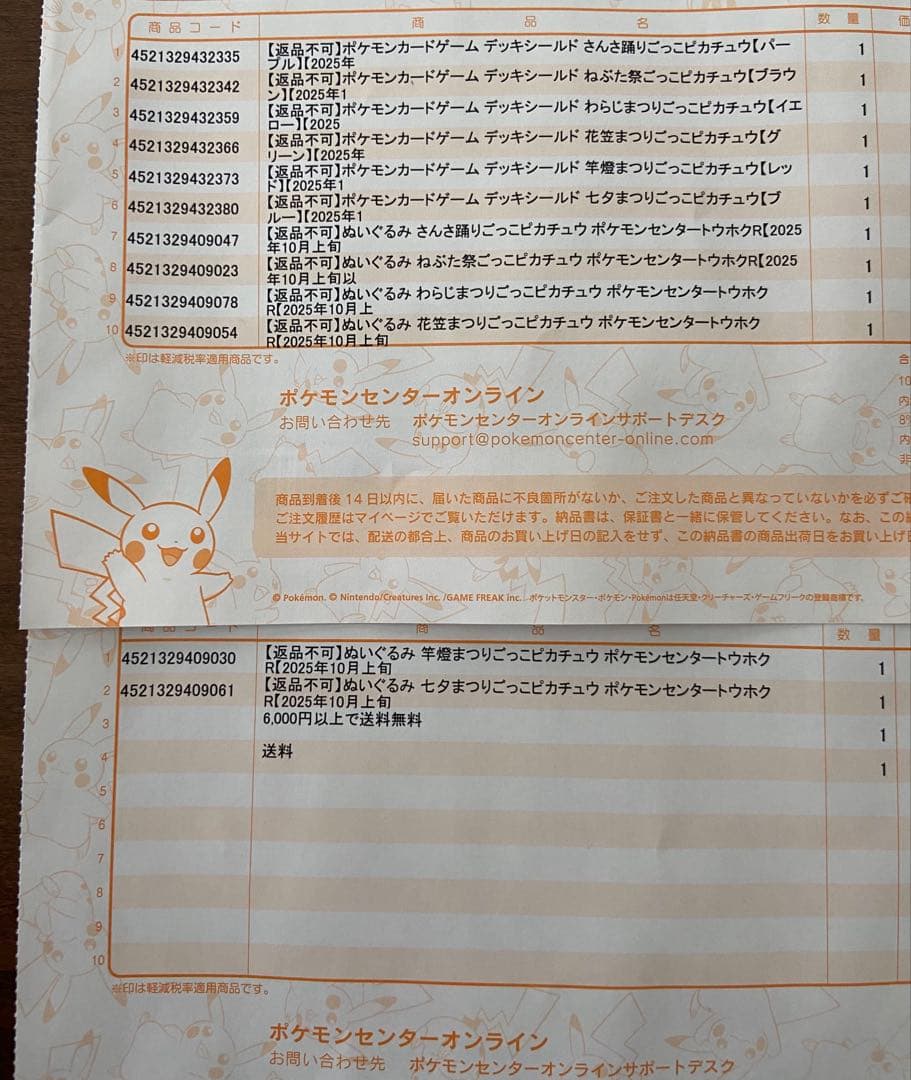 商品コード 商品名 数量 価
1 4521329432335 【返品不可】ポケモンカードゲーム デッキシールド さんさ踊りごっこピカチュウ【パー 1
プル】【2025年
2 4521329432342 【返品不可】ポケモンカードゲーム デッキシールド ねぶた祭ごっこピカチュウ【ブラウ 1
ン】【2025年1
3 4521329432359 【返品不可】ポケモンカードゲーム デッキシールド わらじまつりごっこピカチュウ【イエ 1
ロー】【2025
4 4521329432366 【返品不可】ポケモンカードゲーム デッキシールド 花笠まつりごっこピカチュウ【グ 1
リーン】【2025年
5 4521329432373 【返品不可】ポケモンカードゲーム デッキシールド 竿燈まつりごっこピカチュウ【レッ 1
ド】【2025年1
6 4521329432380 【返品不可】ポケモンカードゲーム デッキシールド 七夕まつりごっこピカチュウ【ブ 1
ルー】【2025年1
7 4521329409047 【返品不可】ぬいぐるみ さんさ踊りごっこピカチュウ ポケモンセンタートウホクR【2025 1
年10月上旬
8 4521329409023 【返品不可】ぬいぐるみ ねぶた祭ごっこピカチュウ ポケモンセンタートウホクR【2025 1
年10月上旬以
9 4521329409078 【返品不可】ぬいぐるみ わらじまつりごっこピカチュウ ポケモンセンタートウホク 1
R【2025年10月上
10 4521329409054 【返品不可】ぬいぐるみ 花笠まつりごっこピカチュウ ポケモンセンタートウホク 1
R【2025年10月上旬
※印は軽減税率適用商品です。
合
10
内
8%
内
非
ポケモンセンターオンライン
お問い合わせ先 ポケモンセンターオンラインサポートデスク
support@pokemoncenter-online.com
商品到着後14日以内に、届いた商品に不良箇所がないか、ご注文した商品と異なっていないかを必ずご確
ご注文履歴はマイページでご覧いただけます。納品書は、保証書と一緒に保管してください。なお、この納
当サイトでは、配送の都合上、商品のお買い上げ日の記入をせず、この納品書の商品出荷日をお買い上げ日
© Pokémon. © Nintendo/Creatures Inc. /GAME FREAK inc. ポケットモンスター・ポケモン・Pokémonは任天堂・クリーチャーズ・ゲームフリークの登録商標です。
商品コード 商品名 数量
1 4521329409030 【返品不可】ぬいぐるみ 竿燈まつりごっこピカチュウ ポケモンセンタートウホク 1
R【2025年10月上旬
2 4521329409061 【返品不可】ぬいぐるみ 七夕まつりごっこピカチュウ ポケモンセンタートウホク 1
R【2025年10月上旬
3 6,000円以上で送料無料 1
4 送料 1
5
6
7
8
9
10
※印は軽減税率適用商品です。
ポケモンセンターオンライン
お問い合わせ先 ポケモンセンターオンラインサポートデスク